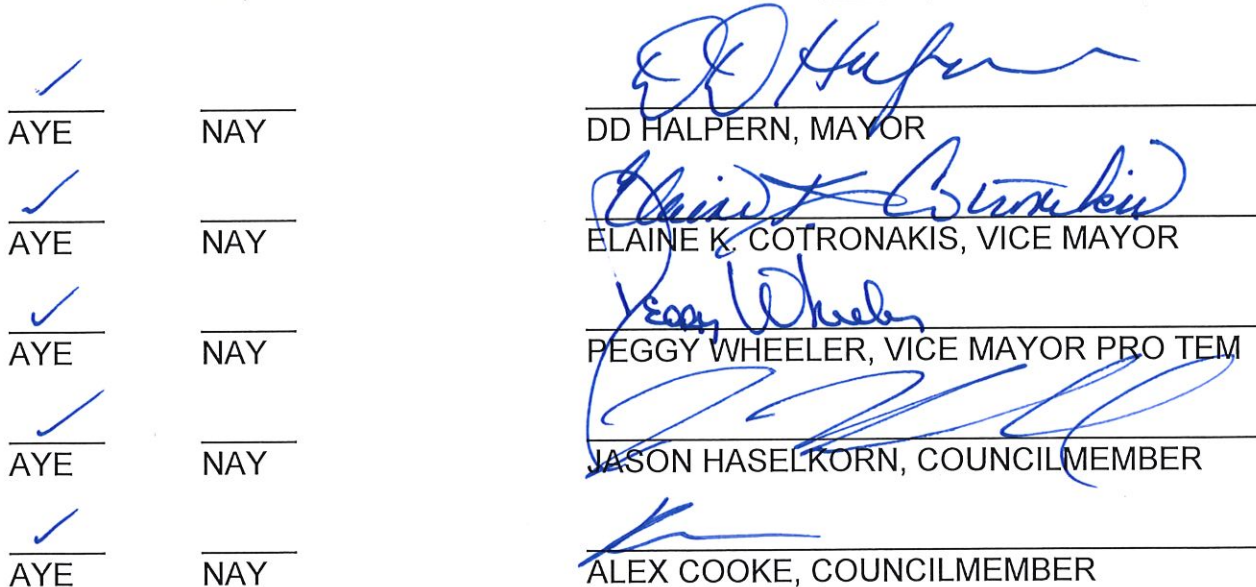 ✓ DD Halpern
AYE NAY DD HALPERN, MAYOR
✓ Elaine K Cotronakis
AYE NAY ELAINE K. COTRONAKIS, VICE MAYOR
✓ Peggy Wheeler
AYE NAY PEGGY WHEELER, VICE MAYOR PRO TEM
✓
AYE NAY JASON HASELKORN, COUNCILMEMBER
✓
AYE NAY ALEX COOKE, COUNCILMEMBER